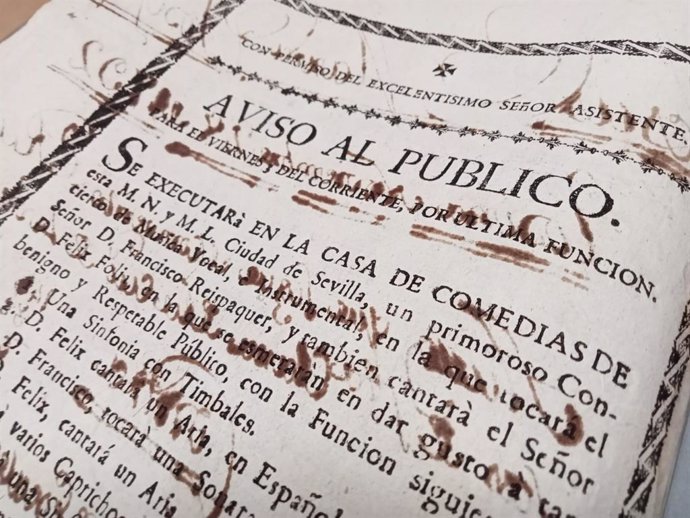 CON PERMISO DEL EXCELENTISIMO SEÑOR ASISTENTE.
AVISO AL PUBLICO.
PARA EL VIERNES 3 DEL CORRIENTE, POR ULTIMA FUNCION.
SE EXECUTARà EN LA CASA DE COMEDIAS DE
esta M. N. y M. L. Ciudad de Sevilla, un primoroso Con-
cierto de Musica Vocal, è Instrumental, en la que tocará el
Señor D. Francisco Reispaquer, y tambien cantarà el Señor
D. Felix Folis, en la que se esmeraràn en dar gusto à tan
benigno y Respetable Público, con la Funcion siguie
Una Sinfonia con Timbales.
D. Felix cantarà un Aria, en Español
D. Francisco, tocarà una Sonata
Felix, cantará un Aria
varios Caprichos
una Si